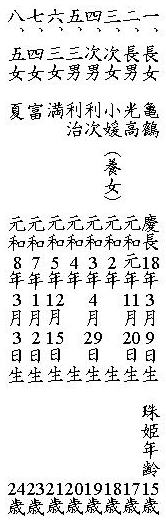 一、長女 龜鶴 慶長18年3月9日生 珠姫年齢15歳
二、長男 光高 元和元年11月20日生 17歳
三、次女 小媛（養女） 元和2年生 18歳
四、次男 利次 元和3年4月29日生 19歳
五、三男 利治 元和4年生 20歳
六、三女 満 元和5年12月15日生 21歳
七、四女 富 元和7年1月2日生 23歳
八、五女 夏 元和8年3月3日生 24歳